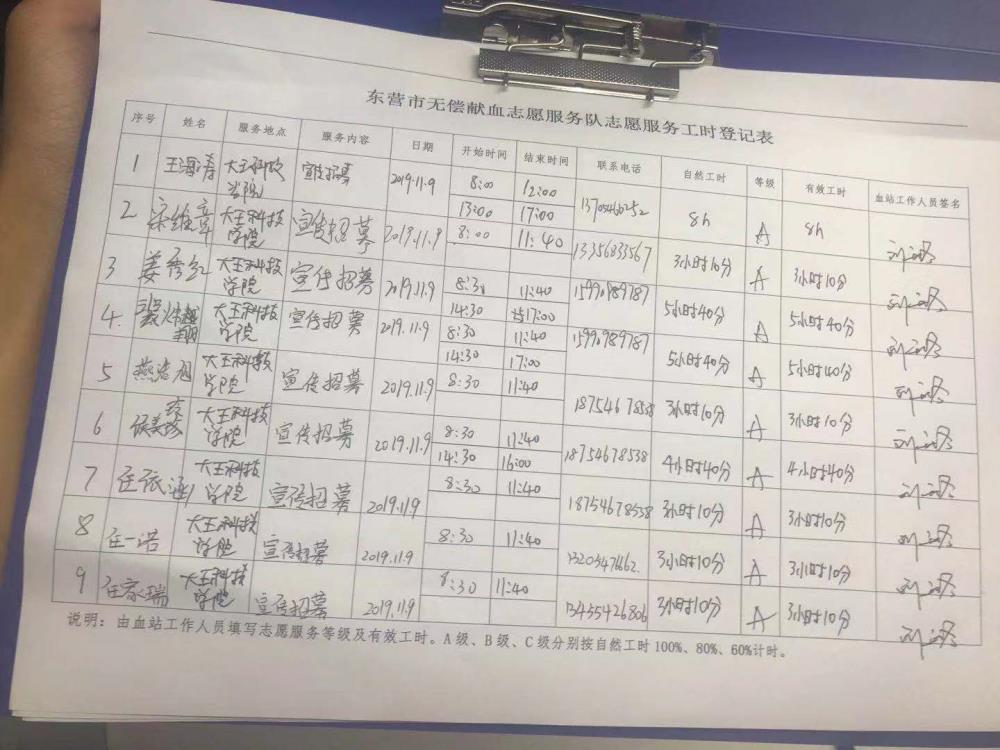 东营市无偿献血志愿服务队志愿服务工时登记表
序号 姓名 服务地点 服务内容 日期 开始时间 结束时间 联系电话 自然工时 等级 有效工时 血站工作人员签名
1 王海涛 大王科技学院 宣传招募 2019.11.9 8:00 12:00 13705460252 8h A 8h
13:00 17:00
2 宋维章 大王科技学院 宣传招募 2019.11.9 8:00 11:40 13356833567 3小时10分 A 3小时10分
3 姜秀红 大王科技学院 宣传招募 2019.11.9 8:30 11:40 15990989787 5小时40分 A 5小时40分
14:30 17:00
4. 大王科技学院 宣传招募 2019.11.9 8:30 11:40 15990989787 5小时40分 A 5小时40分
14:30 17:00
5 燕浩旭 大王科技学院 宣传招募 2019.11.9 8:30 11:40 18754678538 3小时10分 A 3小时10分
6 大王科技学院 宣传招募 2019.11.9 8:30 11:40 18754678538 4小时40分 A 4小时40分
14:30 16:00
7 任依涵 大王科技学院 宣传招募 2019.11.9 8:30 11:40 18754678538 3小时10分 A 3小时10分
8 任一诺 大王科技学院 宣传招募 2019.11.9 8:30 11:40 3小时10分 A 3小时10分
9 任家瑞 大王科技学院 宣传招募 2019.11.9 8:30 11:40 13455426806 3小时10分 A 3小时10分
说明：由血站工作人员填写志愿服务等级及有效工时。A级、B级、C级分别按自然工时100%、80%、60%计时。